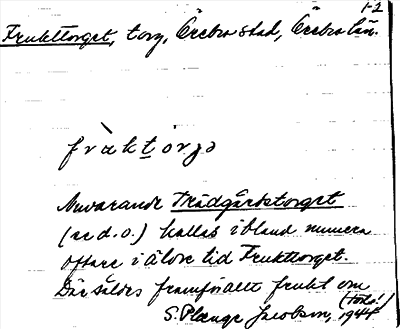 1-2
Frukttorget, torg, Örebro stad, Örebro län.
Nuvarande Trädgårdstorget
(se d.o.) kallas ibland numera
oftare i äldre tid Frukttorget.
Där såldes framförallt frukt om
(forts!)
S. Plænge Jacobson, 1944